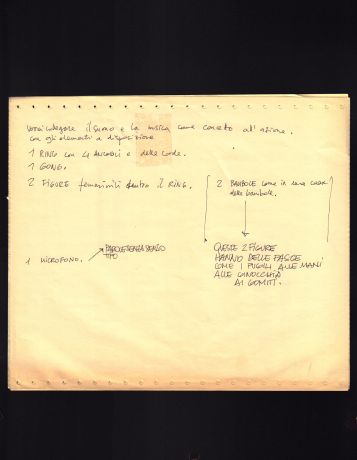 vorrei collegare il suono e la musica come concreto all'azione.
con gli elementi a disposizione
1 RING con 4 ANGOLI e delle corde.
1 GONG.
2 FIGURE femminili dentro il RING.
2 BAMBOLE come in una casa
delle bambole.
1 MICROFONO.
PAROLE SENZA SENSO
TIPO
QUESTE 2 FIGURE
HANNO DELLE FASCE
COME I PUGILI ALLE MANI
ALLE GINOCCHIA
AI GOMITI.